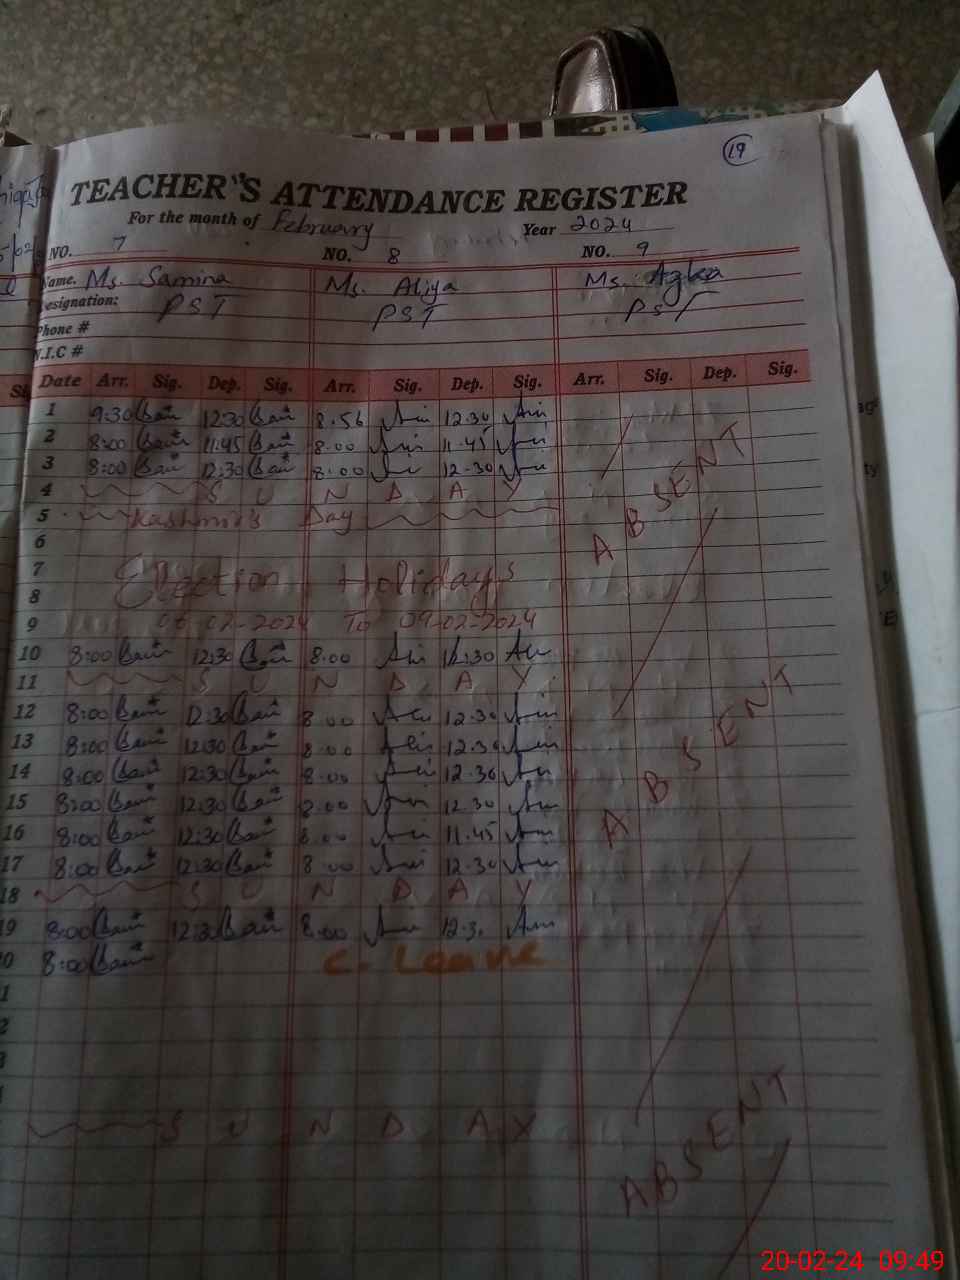 19
TEACHER'S ATTENDANCE REGISTER
For the month of February Year 2024
NO. 7 NO. 8 NO. 9
Name. Ms. Samina Ms. Aliya Ms. Azka
Designation: PST PST PST
Phone #
N.I.C #
Date Arr. Sig. Dep. Sig. Arr. Sig. Dep. Sig. Arr. Sig. Dep. Sig.
1 9:30 12:30 8.56 12.30
2 8:00 11:45 8.00 11.45
3 8:00 12:30 8:00 12.30
4 S U N D A Y
5 Kashmir's Day
ABSENT
6
7 Election Holidays
8
9 06-02-2024 To 09-02-2024
10 8:00 12:30 8.00 12.30
11 S U N D A Y
12 8:00 12:30 8.00 12.30
13 8:00 12:30 8.00 12.30
14 8:00 12:30 8.00 12.30
15 8:00 12:30 8.00 12.30
ABSENT
16 8:00 12:30 8.00 11.45
17 8:00 12:30 8.00 12.30
18 S U N D A Y
19 8:00 12:30 8.00 12.30
20 8:00 C-Leave
1
2
3
S U N D A Y
ABSENT
20-02-24 09:49